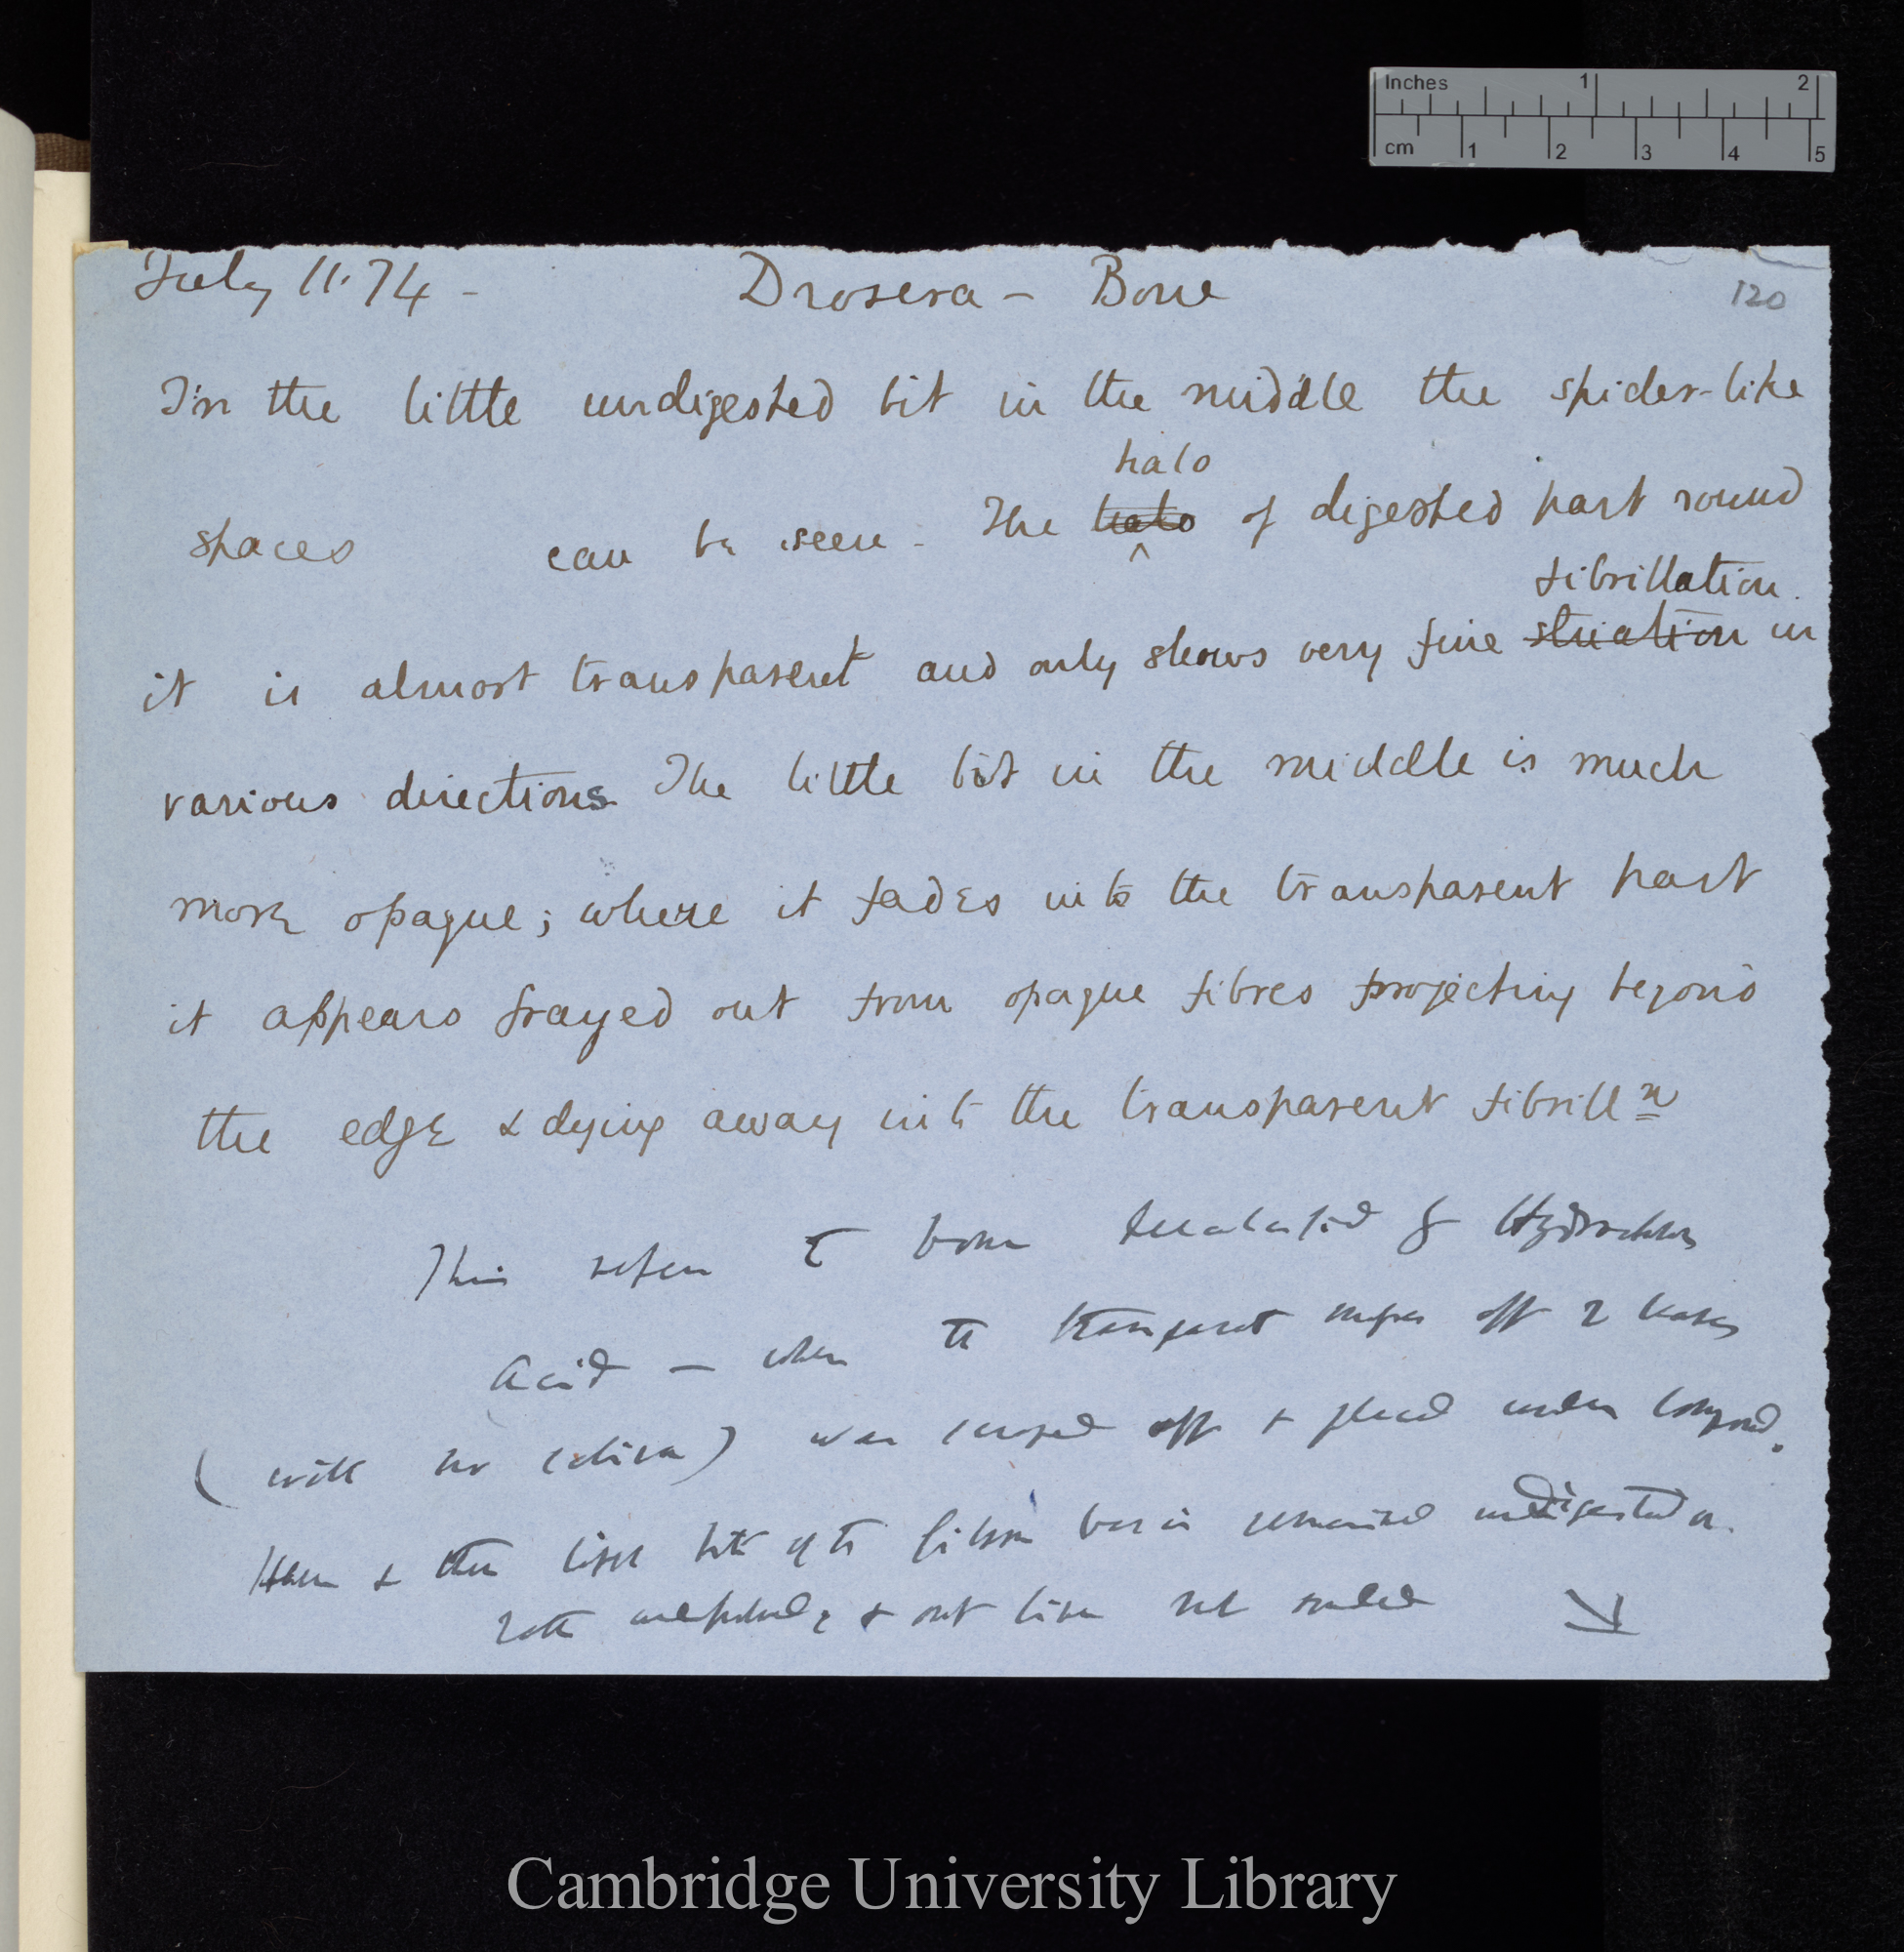 Inches 1 2
cm 1 2 3 4 5
July 11. 74 - Drosera - Bone 120
In the little undigested bit in the middle the spider-like
halo
spaces can be seen. The halo of digested part round
fibrillation.
it is almost transparent and only shows very fine striation in
various directions. The little bit in the middle is much
more opaque; where it fades into the transparent part
it appears frayed out from opaque fibres projecting beyond
the edge & dying away into the transparent fibrilln
This refers to bone Hydrochloric
acid - when the transparent off 2 leaves
(with no saliva) was scraped off & placed under compound.
Here & there little bits of the fibrous basis remained undigested
& outline not
Cambridge University Library